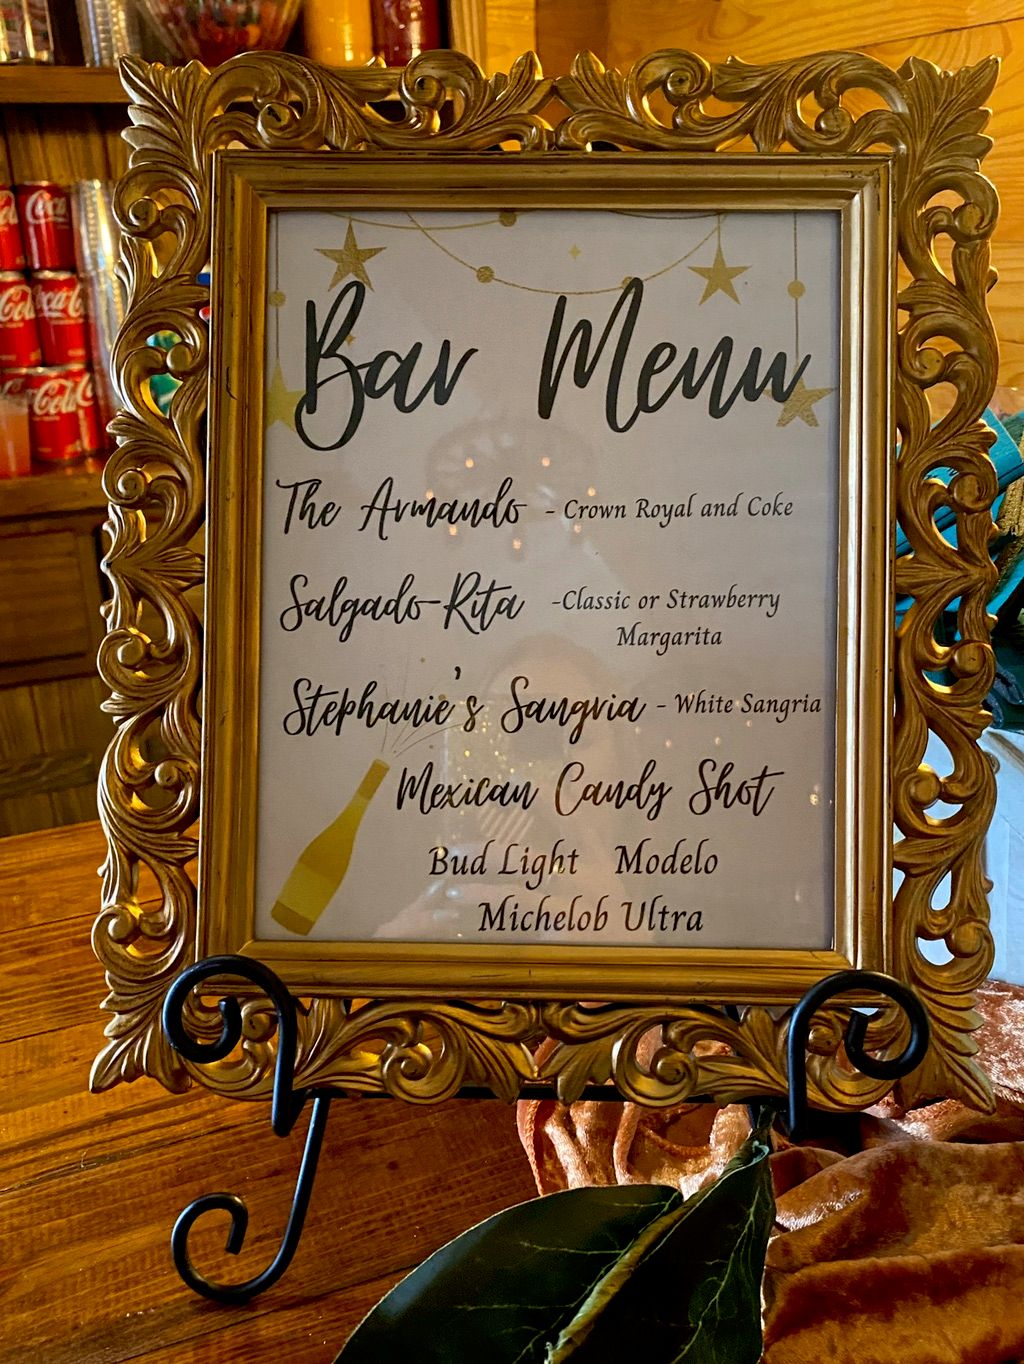 Bar Menu
The Armando - Crown Royal and Coke
Salgado-Rita -Classic or Strawberry
Margarita
Stephanie's Sangria - White Sangria
Mexican Candy Shot
Bud Light Modelo
Michelob Ultra
Coca-Cola